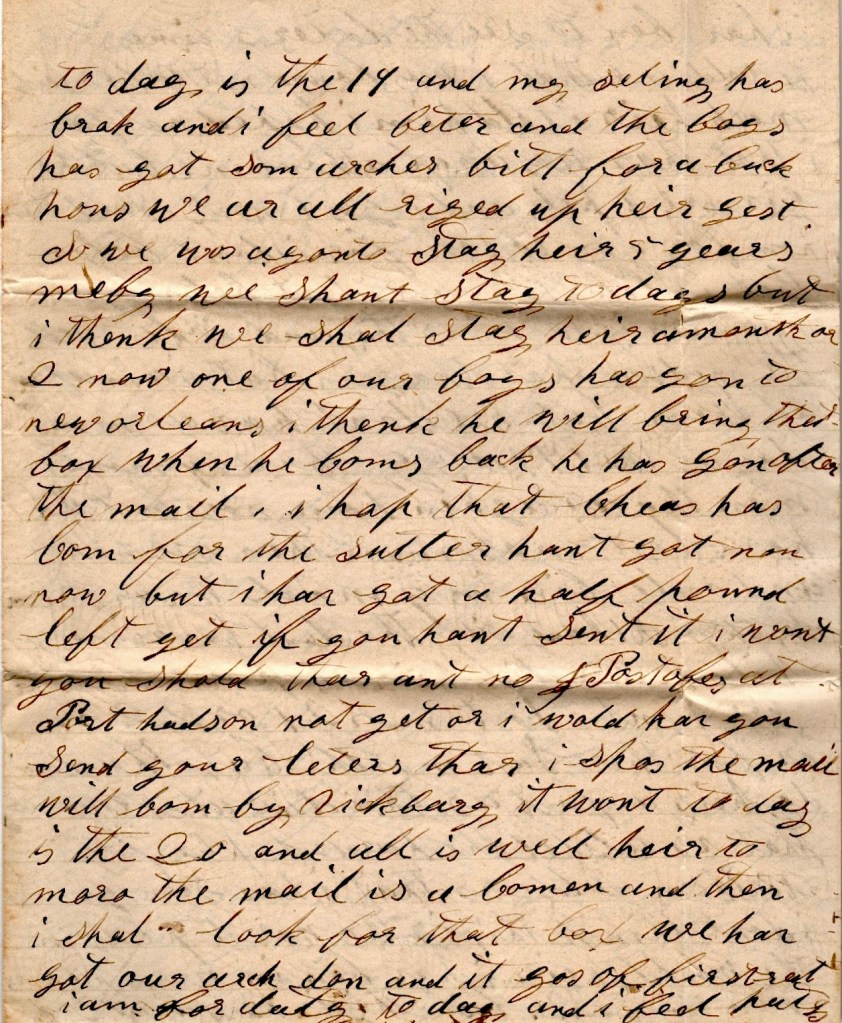 to day is the 19 and my seling has
brok and i feel beter and the boys
has got som archer bilt for a back
hous we ar all riged up heir gest
as we was agont stay heir 5 years
meby we shant stay to days but
i thenk we shal stay heir a month or
2 now one of our boys has gon to
new orleans i thenk he will bring that
box when he coms back he has gon after
the mail i hap that Cheas has
com for the sutter hant got non
now but i har got a half pound
left yet if you hant sent it i wont
you shold thar ant no Postofes at
Port hudson not yet or i wold har you
send your leters thar i spos the mail
will com by Vickburg it wont to day
is the 20 and all is well heir to
moro the mail is a comen and then
i shal look for that box we har
got our arch don and it gos of firstrat
i am for duty to day and i feel paty